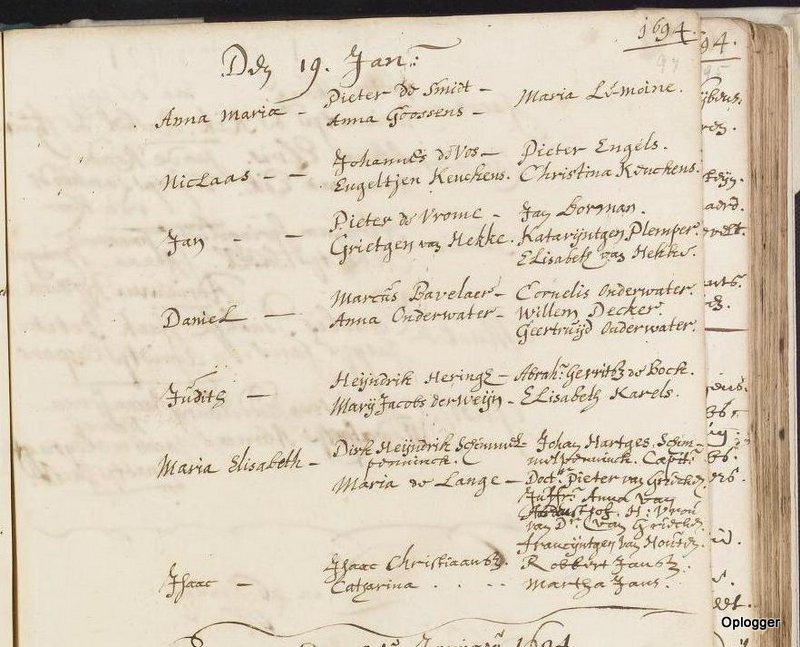 1694.
Den 19. Jan:
Anna Maria - Pieter de Smidt - Maria Lemoine.
Anna Goossens -
Niclaas - - Johannes de Vos - Pieter Engels.
Engeltjen Keuckens. Christina Keuckens.
Jan - - Pieter de Vrome - Jan Borman.
Grietgen van Hekke. Katarijntgen Plemper.
Elisabeth van Hekke.
Daniel - Marcus Bavelaer - Cornelis Onderwater.
Anna Onderwater - Willem Decker.
Geertruijd Onderwater.
Judith - Heijndrik Heringh - Abrah: Gerritsz de Bock.
Marij Jacobs der Weijn - Elisabeth Karels.
Maria Elisabeth - Dirk Heijndrik Schimmel- Johan Hartges. Schim-
penninck. Capit:
Maria de Lange - Doct: Pieter van Griecken
Juffr: Anna van
H: Vrou
van D: van Griecken
Francijntgen van Houten.
Isaac - Isaac Christiaansz. Robbert Jansz.
Catharina . . . . Martha Jans.
1694
94.
Oplogger